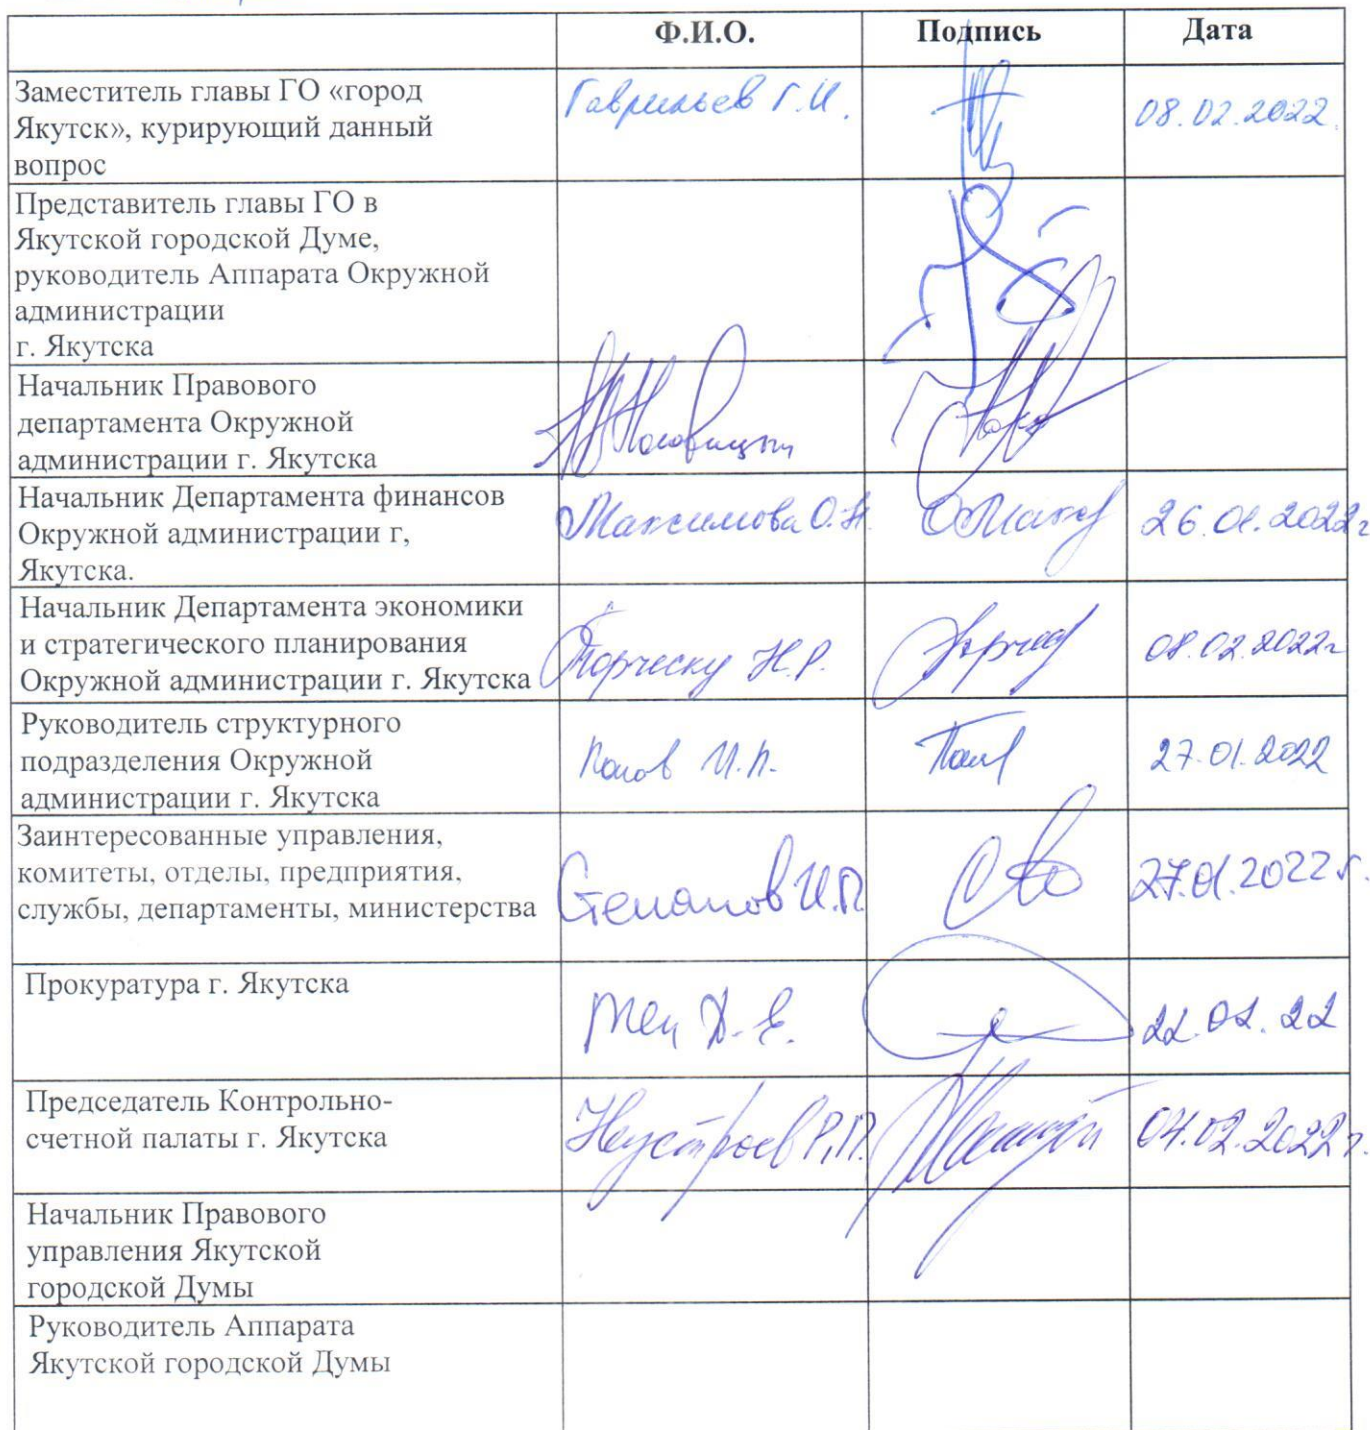 Ф.И.О. Подпись Дата
Заместитель главы ГО «город
Якутск», курирующий данный
вопрос
Гаврильев Г.И. 08.02.2022.
Представитель главы ГО в
Якутской городской Думе,
руководитель Аппарата Окружной
администрации
г. Якутска
Начальник Правового
департамента Окружной
администрации г. Якутска
Начальник Департамента финансов
Окружной администрации г,
Якутска.
Максимова О.Н. 26.01.2022г
Начальник Департамента экономики
и стратегического планирования
Окружной администрации г. Якутска
Торческу Н.Р. 08.02.2022г
Руководитель структурного
подразделения Окружной
администрации г. Якутска
Попов И.П. 27.01.2022
Заинтересованные управления,
комитеты, отделы, предприятия,
службы, департаменты, министерства
Степанов И.П. 27.01.2022 г.
Прокуратура г. Якутска
Д.Е.
Председатель Контрольно-
счетной палаты г. Якутска
Неустроев Р.П. 04.02.2022 г.
Начальник Правового
управления Якутской
городской Думы
Руководитель Аппарата
Якутской городской Думы